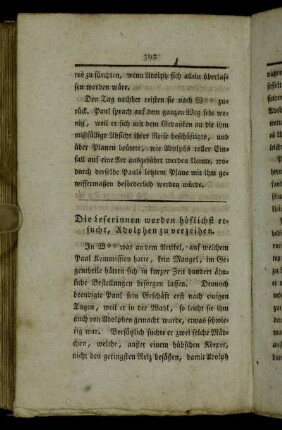 392
res zu fürchten, wenn Adolph sich allein überlas-
sen worden wäre.
Den Tag nachher reisten sie nach W** zu-
rück. Paul sprach auf dem ganzen Weg sehr we-
nig, weil er sich mit dem Gedanken an die ihm
mißfällige Absicht ihrer Reise beschäftigte, und
über Planen brütete, wie Adolphs toller Ein-
fall auf eine Art ausgeführt werden könnte, wo-
durch derselbe Pauls letztem Plane mit ihm ge-
wissermaßen beförderlich werden würde.
Die Leserinnen werden höflichst er-
sucht, Adolphen zu verzeihen.
In W** war an dem Artikel, auf welchem
Paul Kommission hatte, kein Mangel, im Ge-
gentheile hätten sich in kurzer Zeit hundert ähn-
liche Bestellungen besorgen lassen. Dennoch
beendigte Paul sein Geschäft erst nach einigen
Tagen, weil er in der Wahl, so leicht sie ihm
auch von Adolphen gemacht wurde, etwas schwie-
rig war. Vorzüglich suchte er zwei solche Mäd-
chen, welche, außer einem hübschen Körper,
nicht den geringsten Reiz besäßen, damit Adolph